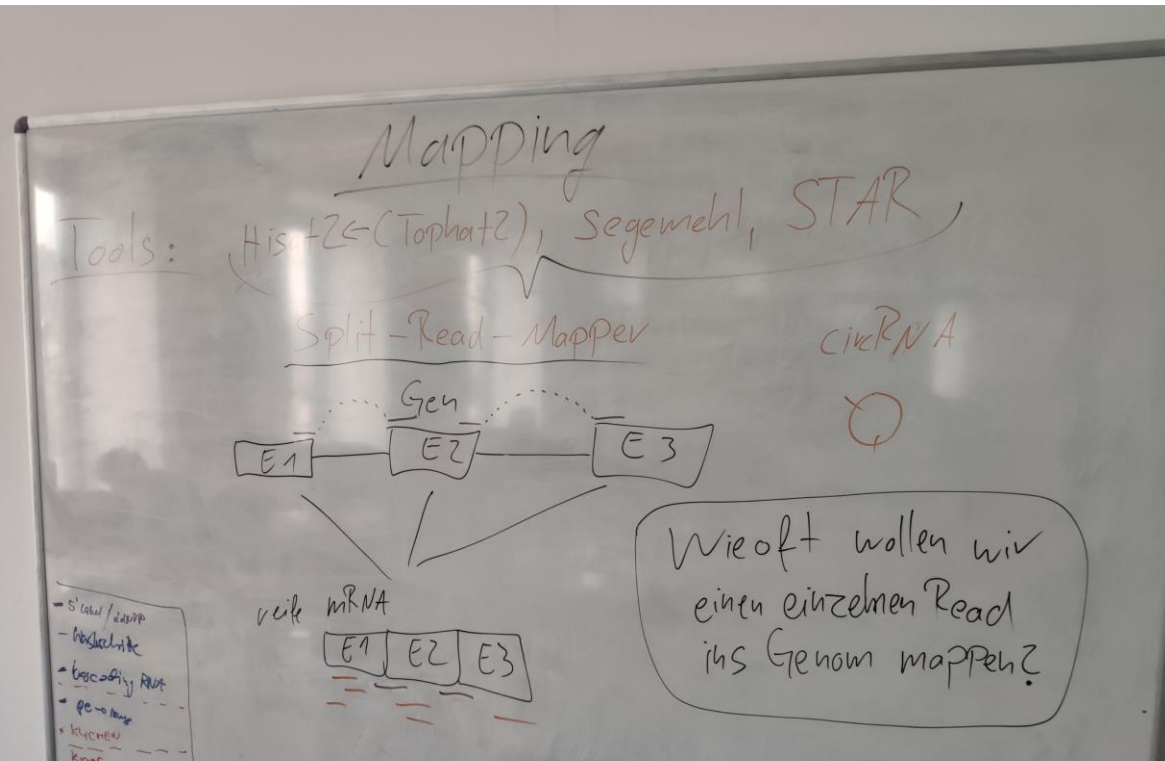 Mapping
Tools: Hisat2←(Tophat2), segemehl, STAR,
Split-Read-Mapper
circRNA
Gen
E1 E2 E3
reife mRNA
E1 E2 E3
Wie oft wollen wir
einen einzelnen Read
ins Genom mappen?
RNA
KUCHEN